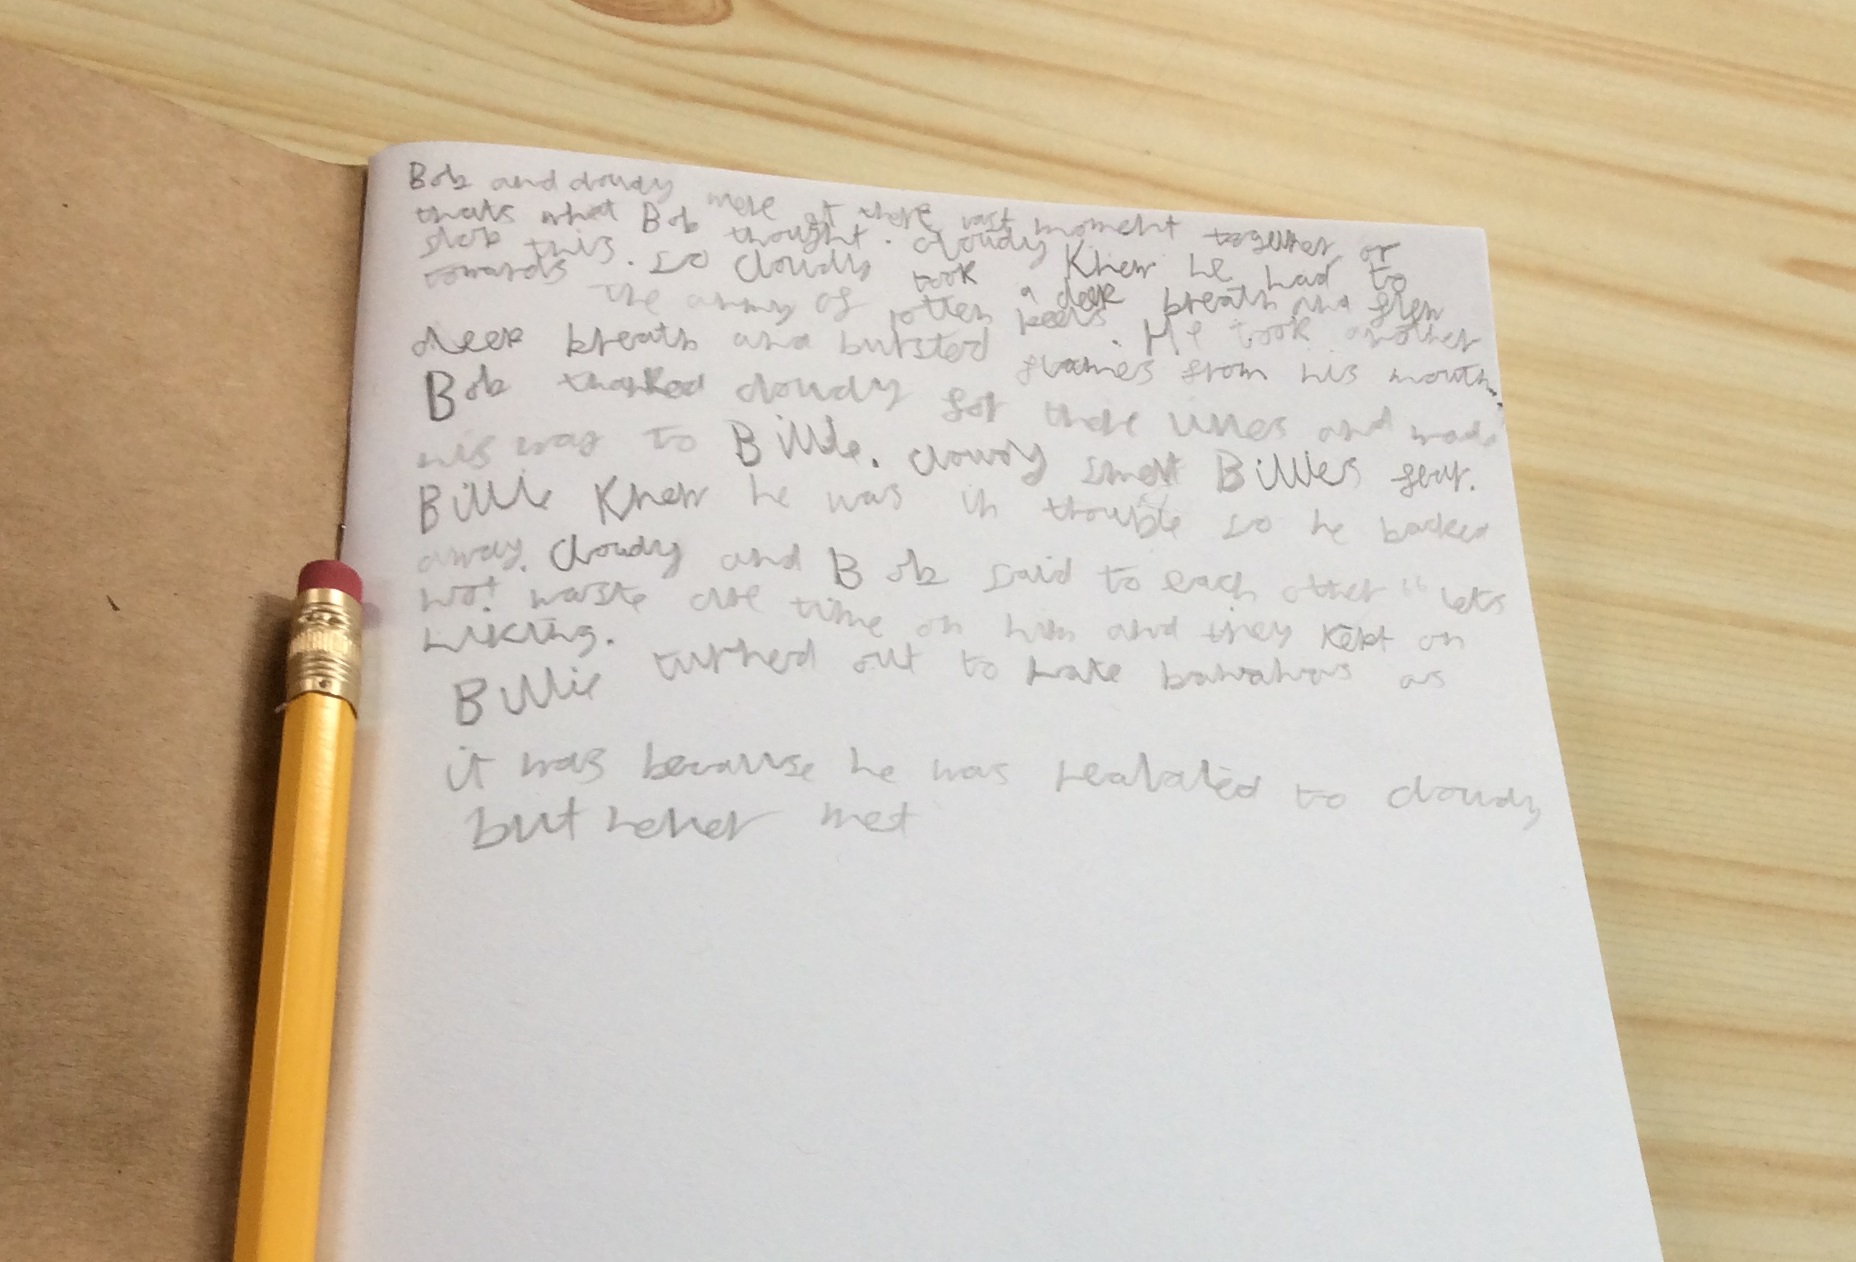 Bob and cloudy were at there last moment together or
thats what Bob thought. cloudy Knew he had to
stop this. so cloudy took a deep breath and flew
towards the army of rotten peels. He took another
deep breath and bursted flames from his mouth.
Bob thanked cloudy for there lives and made
his way to Billie. cloudy smelt Billies fear.
Billie Knew he was in trouble so he backed
away. Cloudy and Bob said to each other "lets
not waste are time on him and they Kept on
hiking.
Billie turned out to hate bananas as
it was because he was realated to cloudy
but never met